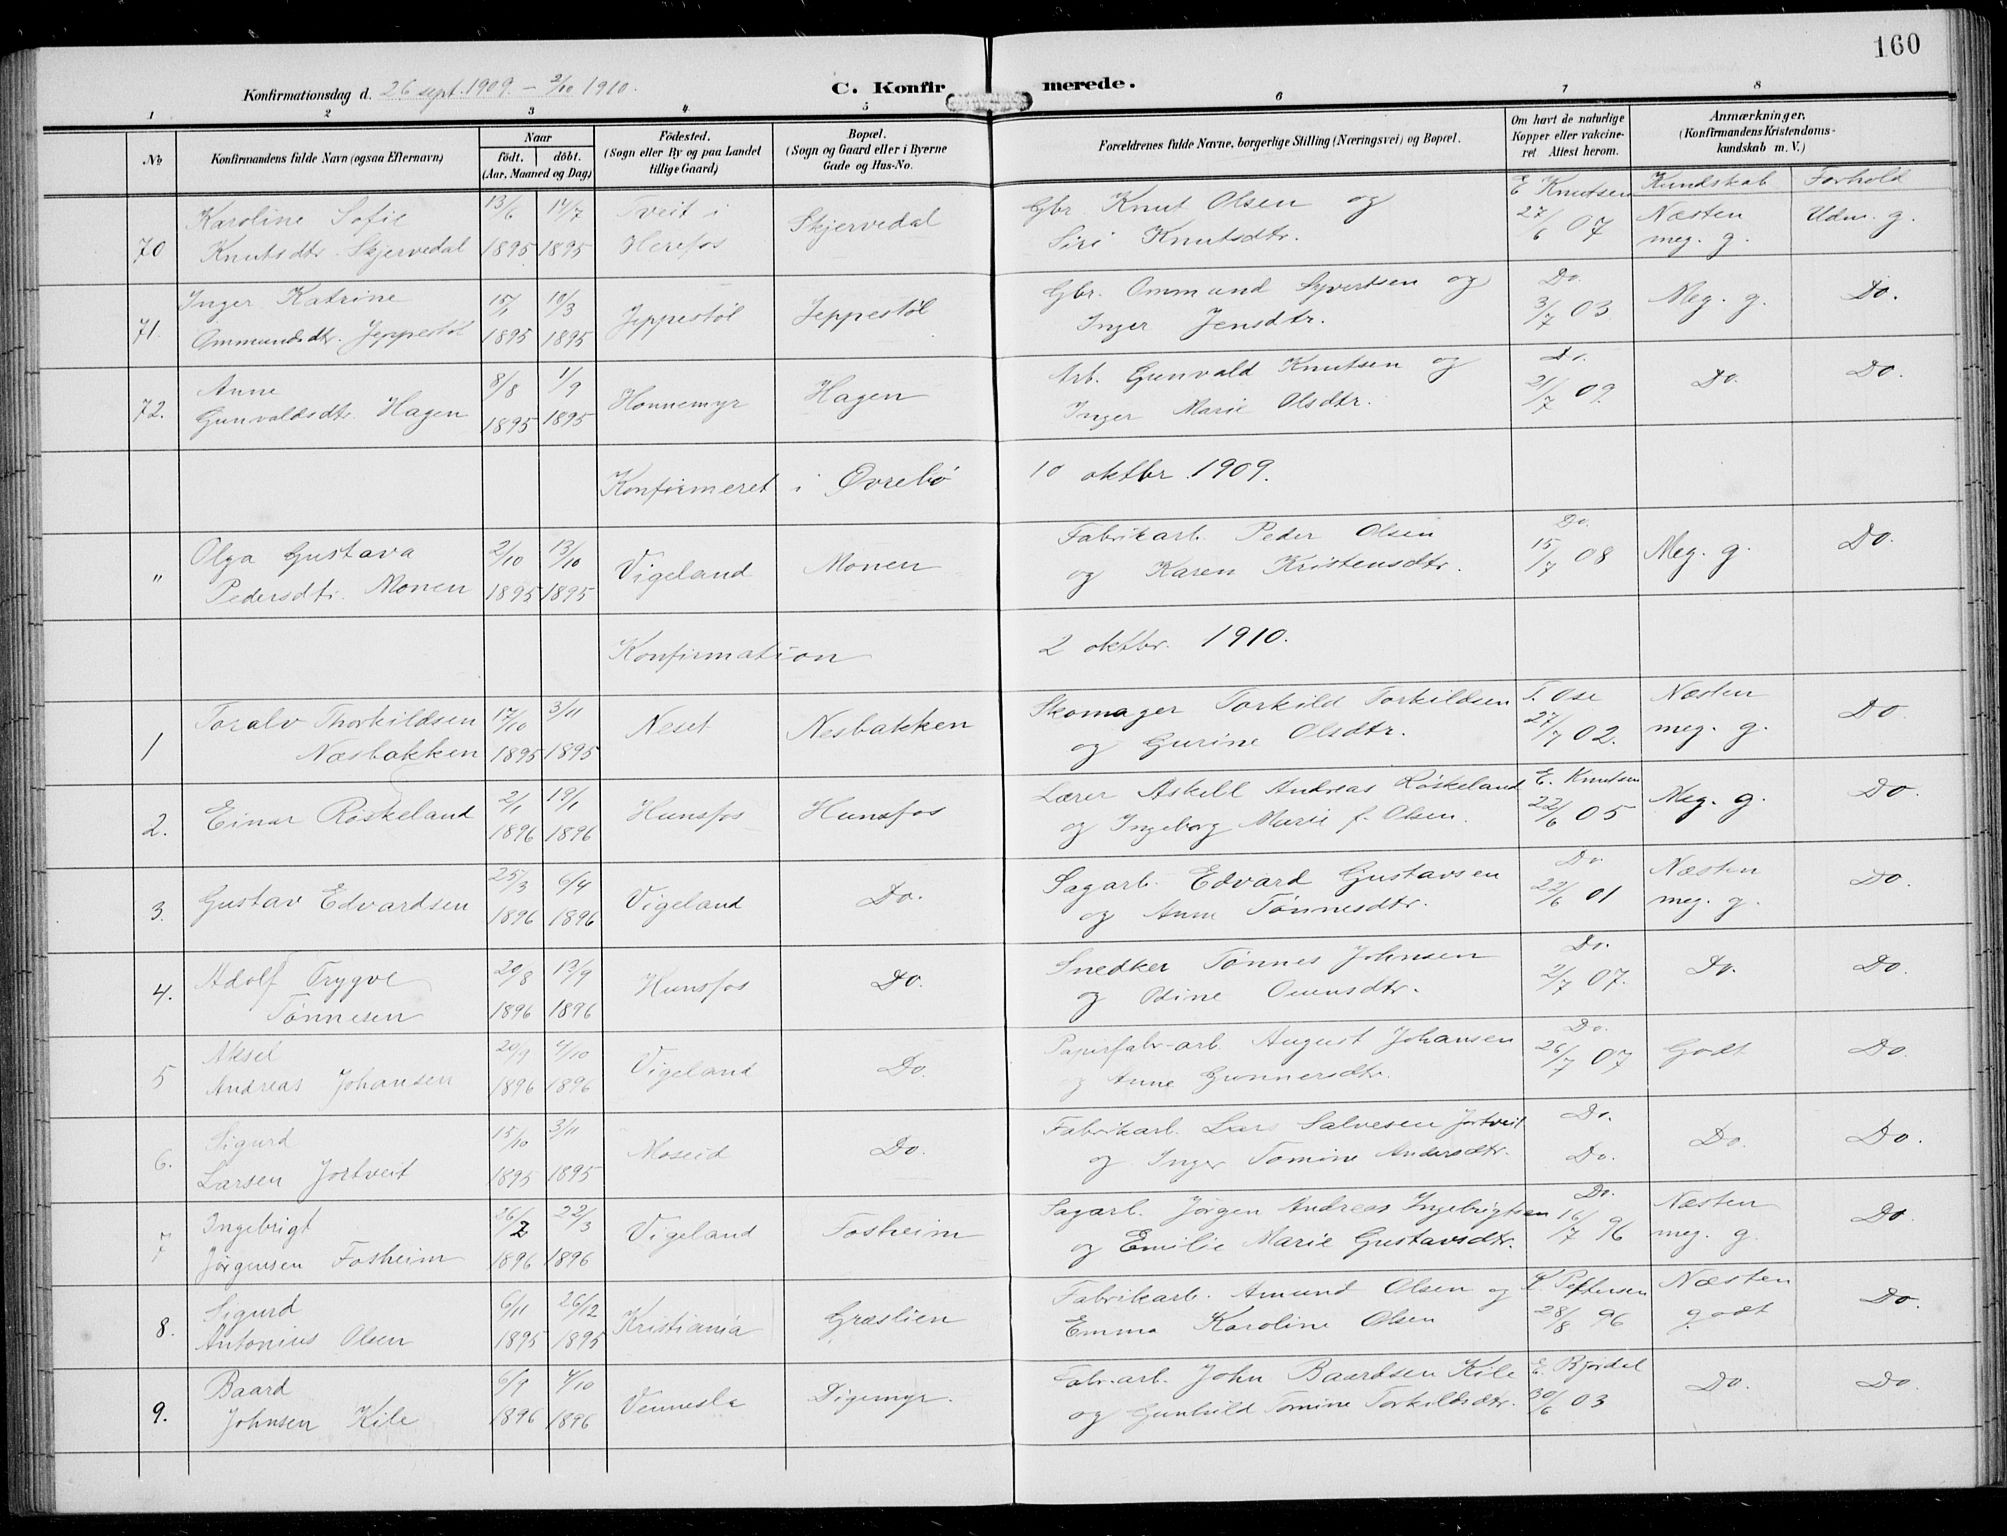 160
Konfirmationsdag d. 26 sept. 1909. – 2/10 1910.
C. Konfirmerede.
1 2 3 4 5 6 7 8
No
Konfirmandens fulde Navn (ogsaa Efternavn)
Naar
født. døbt.
(Aar, Maaned og Dag)
Fødested.
(Sogn eller By og paa Landet
tillige Gaard)
Bopæl.
(Sogn og Gaard eller i Byerne
Gade og Hus-No.
Forældrenes fulde Navne, borgerlige Stilling (Næringsvei) og Bopæl.
Om havt de naturlige
Kopper eller vakcine-
ret Attest herom.
Anmærkninger,
(Konfirmandens Kristendoms-
kundskab m. V.)
Kundskab Forhold
Karoline Sofie 13/6 14/7 Tveit i Skjervedal Gbr. Knut Olsen og E Knutsen Næsten Udm. g.
70 Knutsdtr. Skjervedal 1895 1895 Herefos Siri Knutsdtr. 27/6 07 meg. g.
Inger Katrine 15/1 10/3 Jeppestøl Jeppestøl Gbr. Ommund Syvertsen og Do. Meg. g. Do.
71. Ommundsdtr. Jeppestøl 1895 1895 Inger Jensdtr. 3/7 03
Anne 8/8 1/9 Honnemyr Hagen Arb. Gunvald Knutsen og Do. Do. Do.
72. Gunvaldsdtr. Hagen 1895 1895 Inger Marie Olsdtr. 21/7 09.
Konfirmeret i Øvrebø 10 oktbr. 1909.
Olga Gustava 2/10 13/10 Vigeland Monen Fabrikarb. Peder Olsen Do. Meg. g. Do.
" Pedersdtr. Monen 1895 1895 og Karen Kristensdtr. 15/7 08
Konfirmation 2 oktbr. 1910.
Toralv Thorkildsen 17/10 3/11 Neset Nesbakken Skomager Torkild Torkildsen T. Ose Næsten Do.
1 Næsbakken 1895 1895 og Gurine Olsdtr. 27/7 02. meg. g.
2. Einar Røskeland 2/1 19/1 Hunsfos Hunsfos Lærer Askild Andreas Røskeland E. Knutsen Meg. g. Do.
1896 1896 og Ingeborg Marie f. Olsen. 22/6 05
3. Gustav Edvardsen 25/3 6/4 Vigeland Do. Sagarb. Edvard Gustavsen Do. Næsten Do.
1896 1896 og Anne Tønnesdtr. 22/6 01 meg. g.
4. Adolf Trygve 20/8 13/9 Hunsfos Do. Snedker Tønnes Johnsen Do. Do. Do.
Tønnesen 1896 1896 og Odine Ouensdtr. 2/7 07.
Aksel 20/9 4/10 Vigeland Do. Papirfabr-arb. August Johansen Do. Godt Do.
5 Andreas Johansen 1896 1896 og Anne Gunnersdtr. 26/7 07
Sigurd 15/10 3/11 Moseid Do. Fabrikarb. Lars Salvesen Jortveit Do. Do. Do.
6. Larsen Jortveit 1895 1895 og Inger Tomine Andersdtr. Do.
Ingebrigt 26/2 22/3 Vigeland Fosheim Sagarb. Jørgen Andreas Ingebrigtsen Do. Næsten Do.
7 Jørgensen Fosheim 1896 1896 og Emilie Marie Gustavsdtr. 16/7 96 meg. g.
Sigurd 6/11 26/12 Kristiania Græslien Fabrikarb. Amund Olsen og Pettersen Næsten Do.
8. Antonius Olsen 1895 1895 Emma Karoline Olsen 28/8 96 godt
Baard 6/9 4/10 Vennesla Digemyr. Fabr-arb. John Baardsen Kile E. Bjørdal Do. Do.
9. Johnsen Kile 1896 1896 og Gunhild Tomine Torkildsdtr. 30/6 03